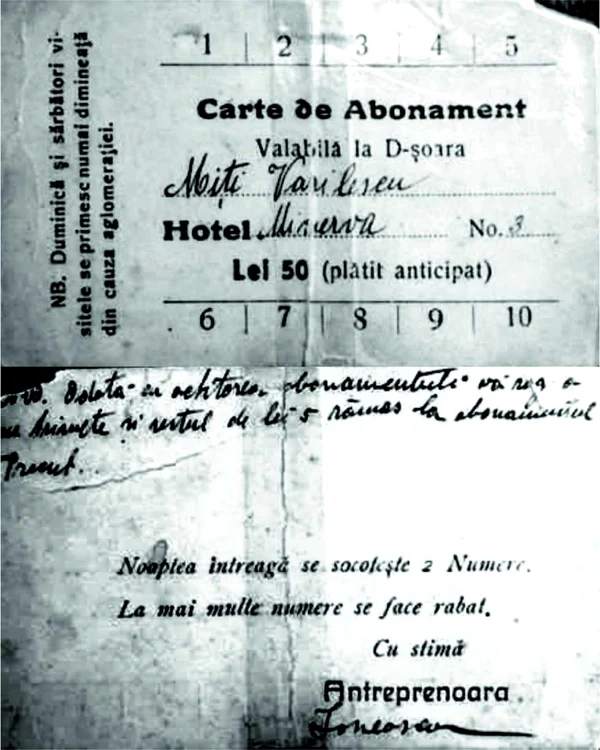 1 | 2 | 3 | 4 | 5
Carte de Abonament
Valabilă la D-șoara
Miți Vasilescu
Hotel Minerva No. 3
Lei 50 (plătit anticipat)
6 | 7 | 8 | 9 | 10
NB. Duminică și sărbători vi-
sitele se primesc numai dimineață
din cauza aglomerației.
Odată cu achitarea abonamentului vă rog a
trimete și restul de lei 5 rămas la abonamentul
Trecut.
Noaptea întreagă se socotește 2 Numere.
La mai multe numere se face rabat.
Cu stimă
Antreprenoara
Ionescu